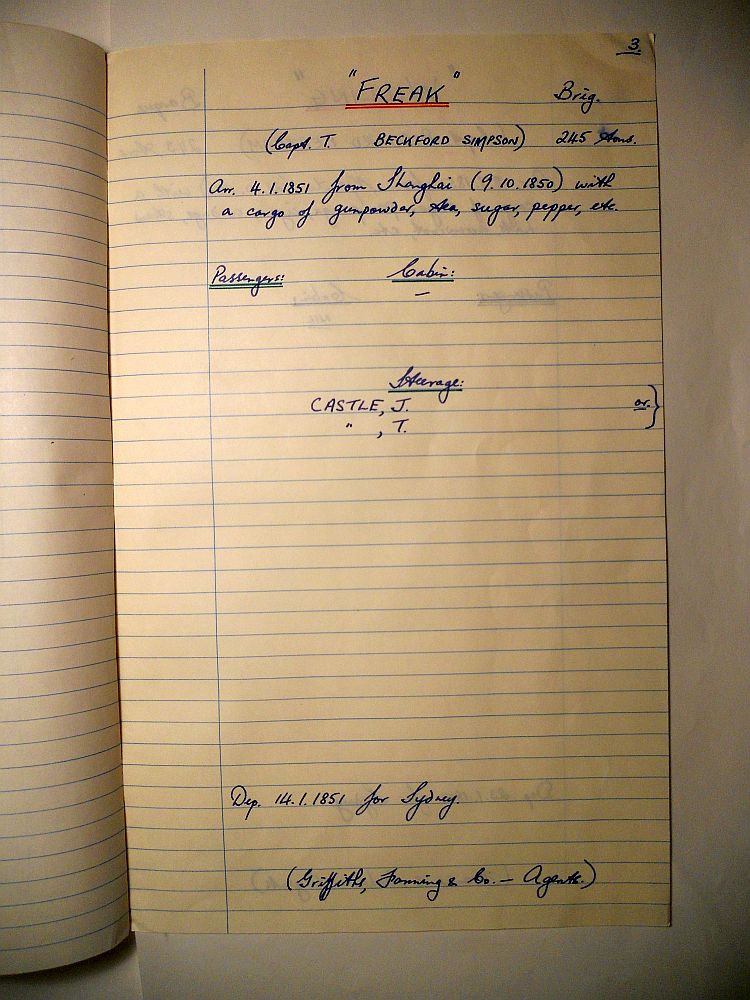 3.
"FREAK" Brig.
(Capt. T. BECKFORD SIMPSON) 245 tons.
Arr. 4.1.1851 from Shanghai (9.10.1850) with
a cargo of gunpowder, tea, sugar, pepper, etc.
Passengers: Cabin:
—
Steerage:
CASTLE, J. or. }
" , T.
Dep. 14.1.1851 for Sydney.
(Griffiths, Fanning & Co. — Agents.)